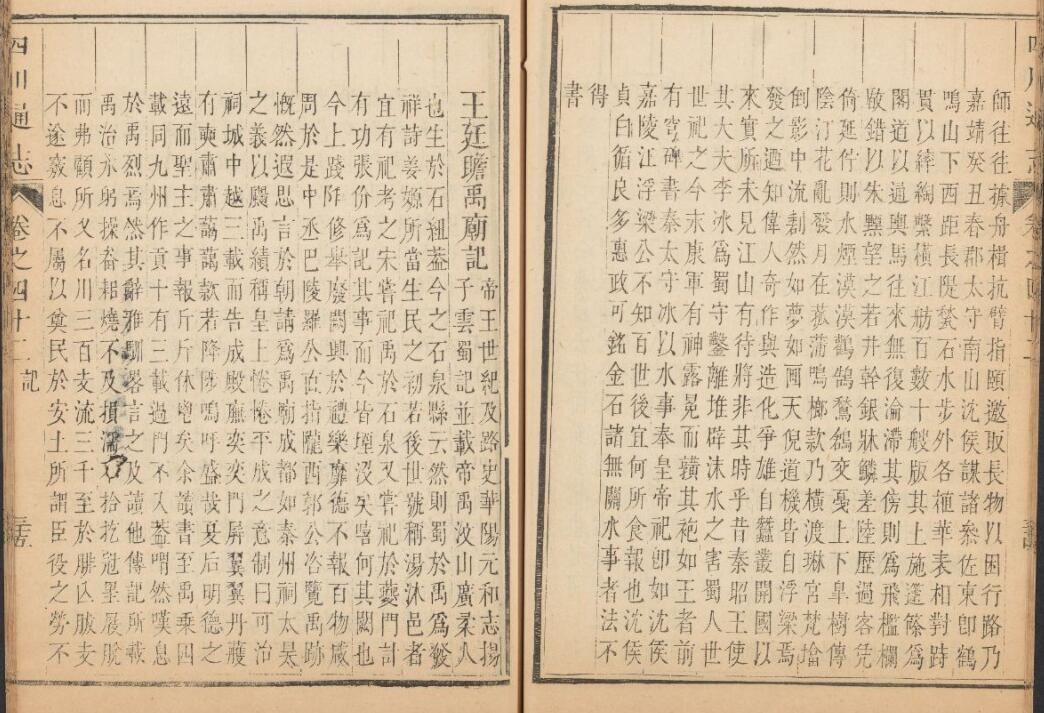 師往往據舟楫抗臂指頤邀取長物以困行路乃
嘉靖癸丑春郡太守南山沈侯謀諸叅佐東卽鶴
鳴山下西距長隄甃石水步外各植華表相對跱
貫以繂綯繫橫江舫百數十艘版其上施籧篨爲
閣道以過輿馬往來無復淪滯其傍則爲飛檻欄
敧錯以朱黝望之若井幹銀牀鱗差陸歷過客凭
倚延佇則水煙漠漠鸛鵠鶖鶬交戞上下皐樹傳
陰汀花亂發月在菰蒲鳴榔款乃橫渡琳宮梵墖
倒影中流剨然如夢如畫天倪道機皆自浮梁焉
發之迺知偉人奇作與造化爭雄自蠶叢開國以
來實所未見江山有待將非其時乎昔秦昭王使
其大夫李冰爲蜀守鑿離堆辟沫水之害蜀人世
世祀之今永康軍有神露冕而韨其袍如王者前
有穹碑書秦太守冰以水事奉皇帝祀卽如沈侯
嘉陵江浮梁公不知百世後宜何所食報也沈侯
貞白循良多惠政可銘金石諸無關水事者法不
得
書
四川通志
卷之四十二 記
三五
王廷瞻禹廟記 帝王世紀及路史華陽元和志揚
子雲蜀記並載帝禹汶山廣柔人
也生於石紐葢今之石泉縣云然則蜀於禹爲發
祥詩姜嫄所當生民之初若後世號稱湯沐邑者
宜有祀考之宋嘗祀禹於石泉又嘗祀於夔門計
有功張份爲記其事而今皆堙沒矣嘻何其闕也
今上踐阼修舉廢闕興於禮樂靡德不報百物咸
周於是中丞巴陵羅公直指隴西郭公咨覽禹跡
慨然遐思言於朝請爲禹廟成都如秦州祠太昊
之義以飏禹績稱皇上惓惓平成之意制曰可治
祠城中越三載而告成殿廡奕奕門屏翼翼丹雘
有奭肅肅藹藹款若降陟嗚呼盛哉夏后明德之
遠而聖主之事報斤斤休鬯矣余讀書至禹乘四
載同九州作貢十有三載過門不入葢喟然嘆息
於禹烈焉然其辭雅馴畧言之及讀他傳記所載
禹治水躬操畚耜燒不及損濡不及拾扢冠罣履脫
而弗顧所又名川三百支流三千至於腓亾胈支
不遂家息不屬以奠民於安土所謂臣役之勞不